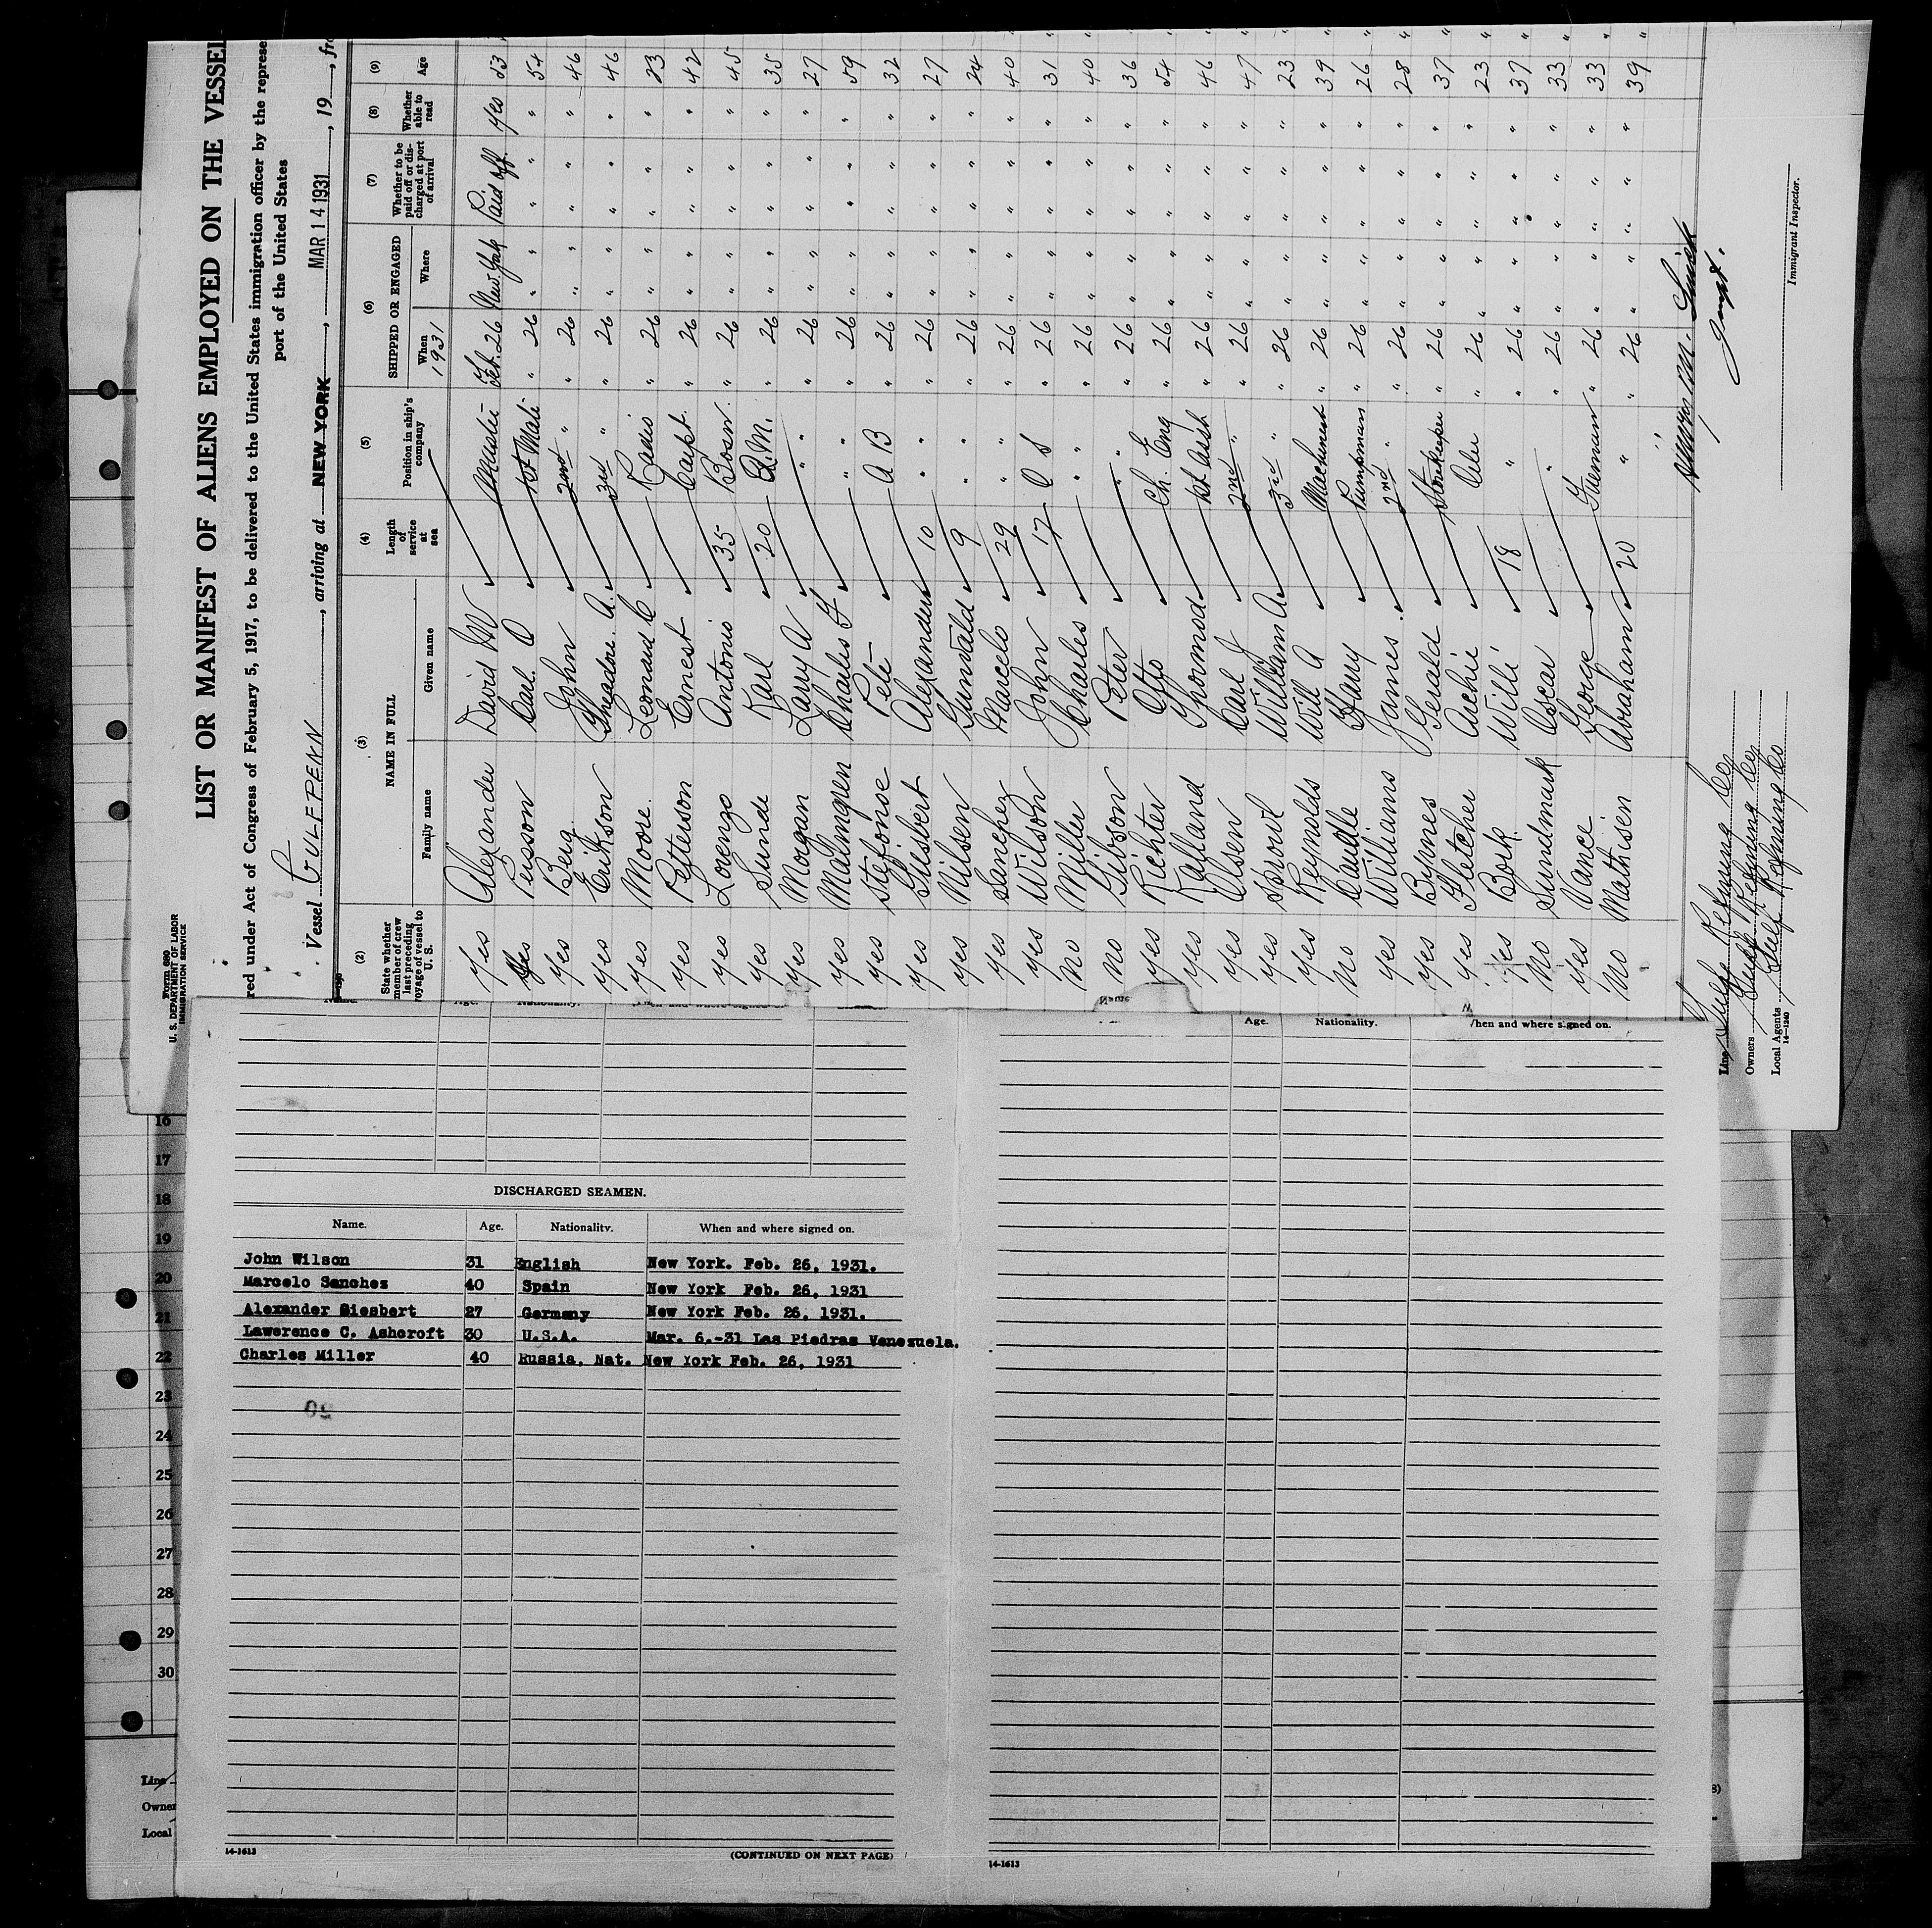 Form 680
U. S. DEPARTMENT OF LABOR
IMMIGRATION SERVICE
LIST OR MANIFEST OF ALIENS EMPLOYED ON THE VESSEL
red under Act of Congress of February 5, 1917, to be delivered to the United States immigration officer by the represe
port of the United States
Vessel GULFPENN, arriving at NEW YORK, MAR 14 1931, 19 , fro
(2) (3) (4) (5) (6) (7) (8) (9)
State whether member of crew last preceding voyage of vessel to U. S. NAME IN FULL Family name Given name Length of service at sea Position in ship's company SHIPPED OR ENGAGED When 1931 Where Whether to be paid off or discharged at port of arrival Whether able to read Age
Yes Alexander David M Master Feb. 26 New York Paid off. Yes 53
Yes Persson Carl O 1st Mate " 26 " " " " " 54
Yes Berg John 2nd " " 26 " " " " " 46
Yes Erikson Theadore A. 3rd " " 26 " " " " " 46
Yes Moore Leonard C Radio " 26 " " " " " 23
Yes Petterson Ernest Carpt. " 26 " " " " " 42
Yes Lorenzo Antonio 35 Bosn. " 26 " " " " " 45
Yes Sunde Karl 20 Q.M. " 26 " " " " " 35
Yes Morgan Larry A " " 26 " " " " " 27
Yes Malmgren Charles F " " 26 " " " " " 59
Yes Stefonse Pete A B " 26 " " " " " 32
Yes Giesbert Alexander 10 " " 26 " " " " " 27
Yes Nilsen Gunvald 9 " " 26 " " " " " 24
Yes Sanchez Marcelo 29 " " 26 " " " " " 40
Yes Wilson John 17 O S " 26 " " " " " 31
No Miller Charles " " 26 " " " " " 40
No Gibson Peter " " 26 " " " " " 36
Yes Richter Otto Ch. Eng " 26 " " " " " 54
Yes Kalland Thomod 1st Asst " 26 " " " " " 46
Yes Olsen Carl J 2nd " " 26 " " " " " 47
Yes Sprowl William A 3rd " " 26 " " " " " 23
Yes Reynolds Will A Machinest " 26 " " " " " 39
No Caudle Harry Pumpman " 26 " " " " " 26
Yes Williams James 2nd " " 26 " " " " " 28
Yes Byrnes Gerald Storekeeper " 26 " " " " " 37
Yes Fletcher Archie Oiler " 26 " " " " " 23
Yes Bork Willi 18 " " 26 " " " " " 37
No Sundmark Oscar " " 26 " " " " " 33
Yes Vance George Fireman " 26 " " " " " 33
No Mathisen Abraham 20 " " 26 " " " " " 39
Line Gulf Refining Co
Owners Gulf Refining Co
Local Agents Gulf Refining Co
14-1240
Immigrant Inspector.
Name
Age. Nationality. When and where signed on.
DISCHARGED SEAMEN.
Name. Age. Nationality. When and where signed on.
John Wilson 31 English New York. Feb. 26, 1931.
Marcelo Sanches 40 Spain New York Feb. 26, 1931
Alexander Giesbert 27 Germany New York Feb. 26, 1931.
Lawerence C. Ashcroft 30 U.S.A. Mar. 6.-31 Las Piedras Venezuela.
Charles Miller 40 Russia. Nat. New York Feb. 26, 1931
14-1613
(CONTINUED ON NEXT PAGE)
14-1613
16
17
18
19
20
21
22
23
24
25
26
27
28
29
30
Line
Owner
Local